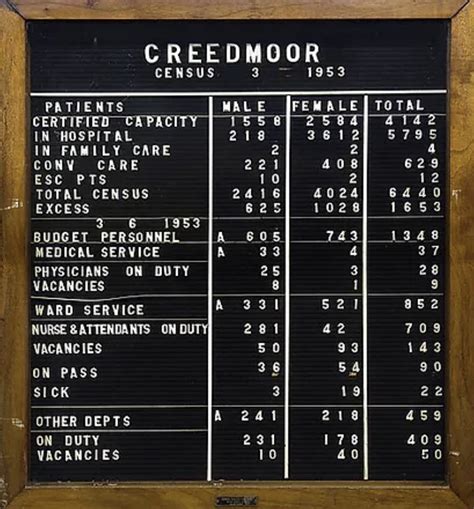 CREEDMOOR
CENSUS 3 1953
PATIENTS MALE FEMALE TOTAL
CERTIFIED CAPACITY 1558 2584 4142
IN HOSPITAL 218 3612 5795
IN FAMILY CARE 2 2 4
CONV CARE 221 408 629
ESC PTS 10 2 12
TOTAL CENSUS 2416 4024 6440
EXCESS 625 1028 1653
3 6 1953
BUDGET PERSONNEL A 605 743 1348
MEDICAL SERVICE A 33 4 37
PHYSICIANS ON DUTY 25 3 28
VACANCIES 8 1 9
WARD SERVICE A 331 521 852
NURSE & ATTENDANTS ON DUTY 281 42 709
VACANCIES 50 93 143
ON PASS 36 54 90
SICK 3 19 22
OTHER DEPTS A 241 218 459
ON DUTY 231 178 409
VACANCIES 10 40 50